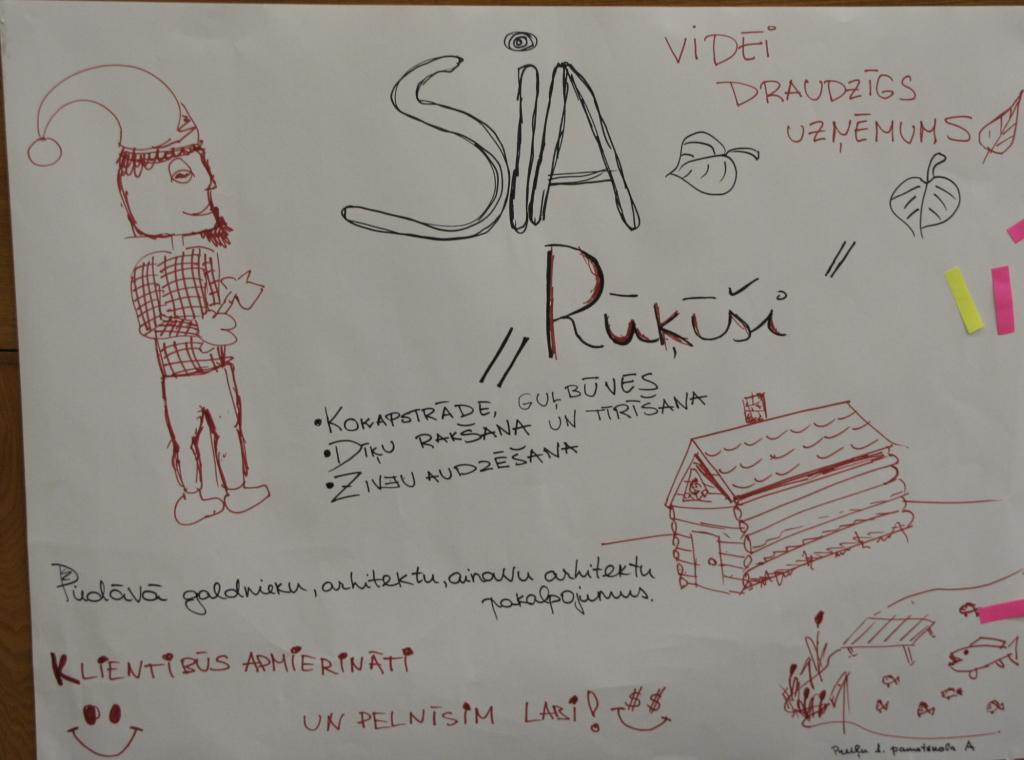 SIA
VIDEI
DRAUDZĪGS
UZŅĒMUMS
„Rūķīši"
• KOKAPSTRĀDE, GUĻBŪVES
• DĪĶU RAKŠANA UN TĪRĪŠANA
• ZIVJU AUDZĒŠANA
Piedāvā galdnieku, arhitektu, ainavu arhitektu
pakalpojumus.
KLIENTI BŪS APMIERINĀTI
UN PELNĪSIM LABI!
$$
pamatskola A